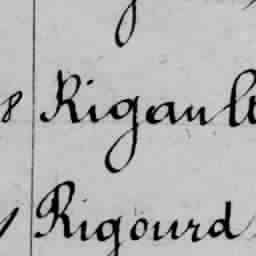 8 Rigault
Rigourd